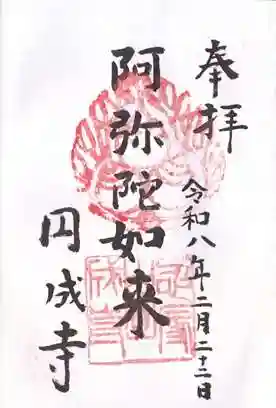 奉拝
令和八年二月二十二日
阿弥陀如来
円成寺